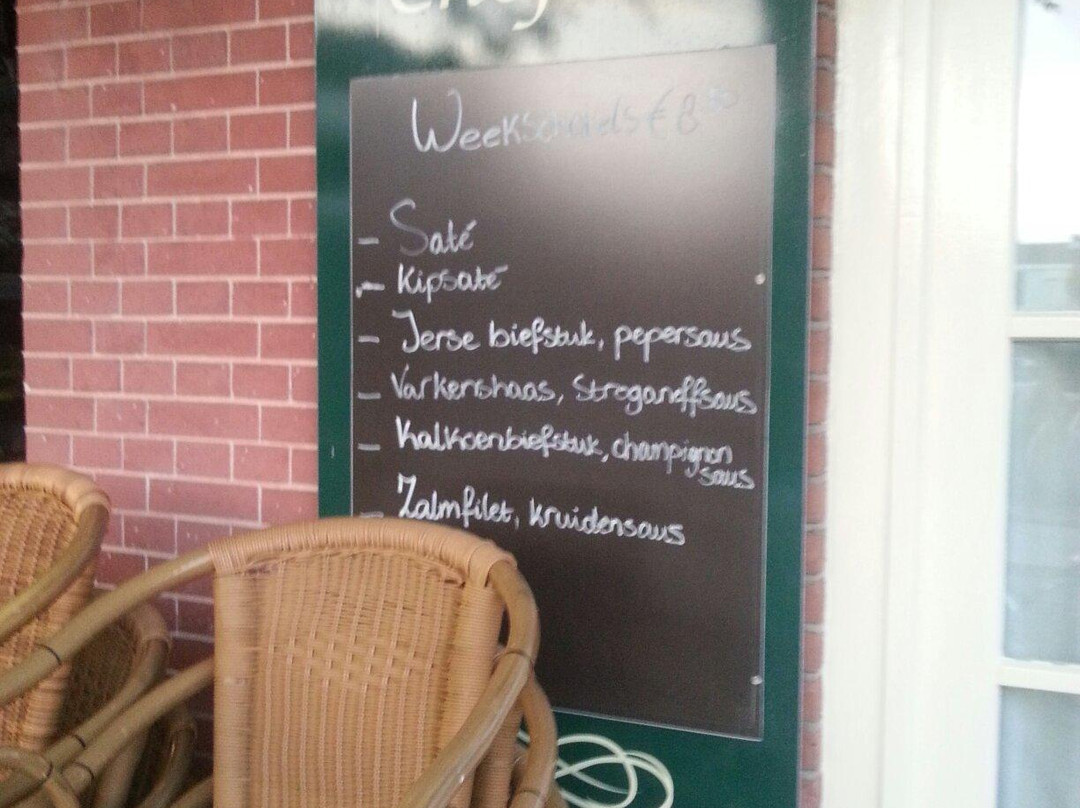 Chef
Weekschotels € 8⁵⁰
- Saté
- Kipsaté
- Ierse biefstuk, pepersaus
- Varkenshaas, Stroganoffsaus
- Kalkoenbiefstuk, champignon
saus
- Zalmfilet, kruidensaus